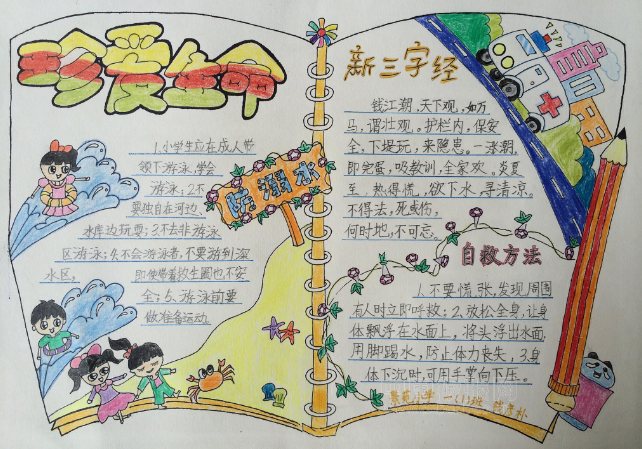 珍爱生命
1.小学生应在成人带
领下游泳,学会
游泳;2.不
要独自在河边、
水库边玩耍;3.不去非游泳
区游泳;4.不会游泳者,不要游到深
水区,即使带着救生圈也不安
全;5.游泳前要
做准备运动
防溺水
新三字经
钱江潮,天下观,如万
马,谓壮观。护栏内,保安
全,下堤玩,来隐患。一涨潮,
即完蛋,吸教训,全家欢。炎夏
至,热得慌,欲下水,寻清凉。
不得法,死或伤,
何时地,不可忘。
自救方法
1.不要慌张,发现周围
有人时立即呼救;2.放松全身,让身
体飘浮在水面上,将头浮出水面,
用脚踢水,防止体力丧失,3.身
体下沉时,可用手掌向下压。
小学 一(1)班